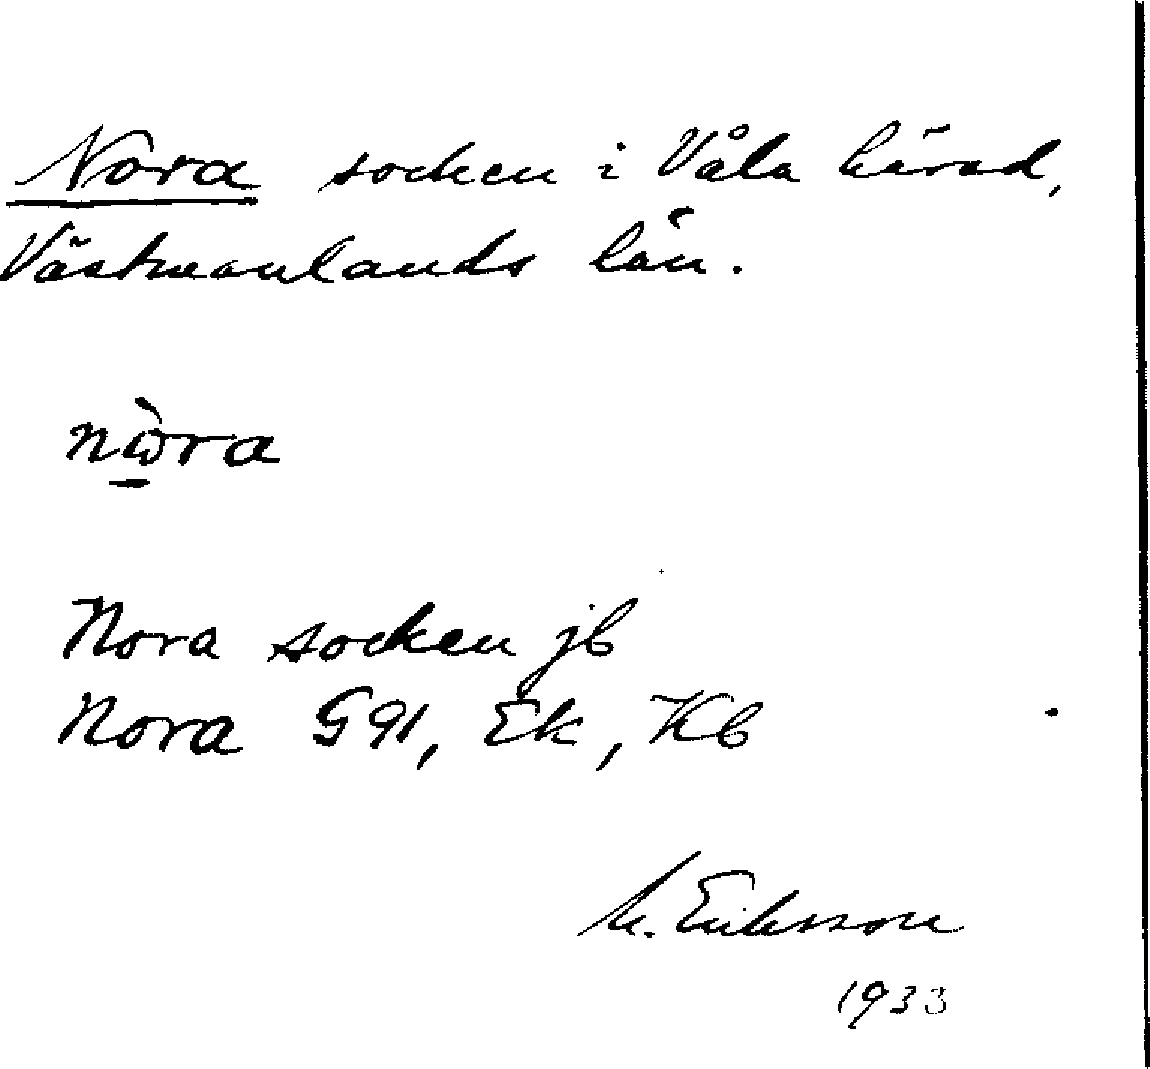 Nora socken i Våla härad,
Västmanlands län.
nὼ̱ra
Nora socken jb
Nora G91, Ek, Kb
M. Eriksson
1933